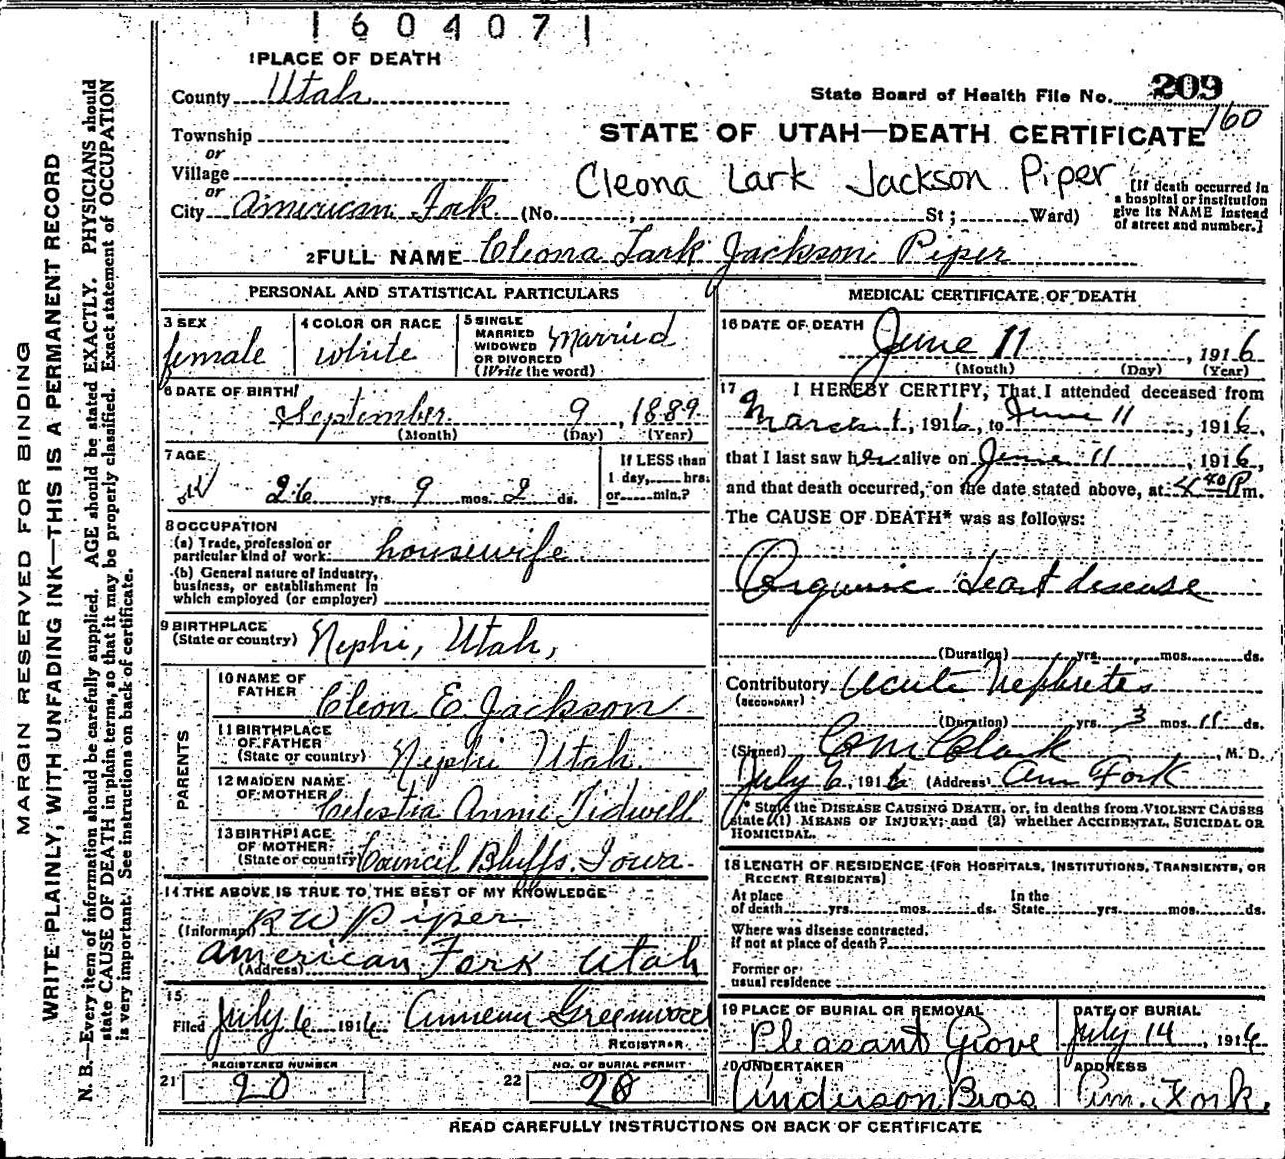 1604071
1 PLACE OF DEATH
County Utah
State Board of Health File No. 209
160
Township
or
Village
or
City American Fork (No. , St; Ward)
STATE OF UTAH—DEATH CERTIFICATE
Cleona Lark Jackson Piper
[If death occurred in
a hospital or institution
give its NAME instead
of street and number.]
2 FULL NAME Cleona Lark Jackson Piper
PERSONAL AND STATISTICAL PARTICULARS
3 SEX
female
4 COLOR OR RACE
White
5 SINGLE
MARRIED
WIDOWED
OR DIVORCED
(Write the word)
Married
6 DATE OF BIRTH
September 9, 1889
(Month) (Day) (Year)
7 AGE
26 yrs. 9 mos. 2 ds.
If LESS than
1 day, hrs.
or min.?
8 OCCUPATION
(a) Trade, profession or
particular kind of work housewife
(b) General nature of industry,
business, or establishment in
which employed (or employer)
9 BIRTHPLACE
(State or country) Nephi, Utah,
PARENTS
10 NAME OF
FATHER Cleon E Jackson
11 BIRTHPLACE
OF FATHER
(State or country) Nephi Utah
12 MAIDEN NAME
OF MOTHER Celestia Annie Tidwell
13 BIRTHPLACE
OF MOTHER
(State or country) Council Bluffs Iowa.
14 THE ABOVE IS TRUE TO THE BEST OF MY KNOWLEDGE
(Informant) R W Piper
(Address) American Fork Utah
15
Filed July 6 1916 Greenwood
REGISTRAR
REGISTERED NUMBER
21 20
NO. OF BURIAL PERMIT
22 28
MEDICAL CERTIFICATE OF DEATH
16 DATE OF DEATH
June 11, 1916
(Month) (Day) (Year)
17 I HEREBY CERTIFY, That I attended deceased from
March 1, 1916, to June 11, 1916,
that I last saw her alive on June 11, 1916,
and that death occurred, on the date stated above, at 4 40 P m.
The CAUSE OF DEATH* was as follows:
Organic Heart disease
(Duration) yrs. mos. ds.
Contributory Acute Nephrites
(SECONDARY)
(Duration) yrs. 3 mos. 11 ds.
(Signed) Clark M. D.
July 6, 1916 (Address) Am Fork
* State the DISEASE CAUSING DEATH, or, in deaths from VIOLENT CAUSES
state (1) MEANS OF INJURY; and (2) whether ACCIDENTAL, SUICIDAL OR
HOMICIDAL.
18 LENGTH OF RESIDENCE (FOR HOSPITALS, INSTITUTIONS, TRANSIENTS, OR
RECENT RESIDENTS)
At place In the
of death yrs. mos. ds. State yrs. mos. ds.
Where was disease contracted.
if not at place of death?
Former or
usual residence
19 PLACE OF BURIAL OR REMOVAL
Pleasant Grove
DATE OF BURIAL
July 14, 1916
20 UNDERTAKER
Anderson Bros
ADDRESS
Am. Fork.
READ CAREFULLY INSTRUCTIONS ON BACK OF CERTIFICATE
MARGIN RESERVED FOR BINDING
WRITE PLAINLY, WITH UNFADING INK—THIS IS A PERMANENT RECORD
N. B.—Every item of information should be carefully supplied. AGE should be stated EXACTLY. PHYSICIANS should
state CAUSE OF DEATH in plain terms, so that it may be properly classified. Exact statement of OCCUPATION
is very important. See instructions on back of certificate.